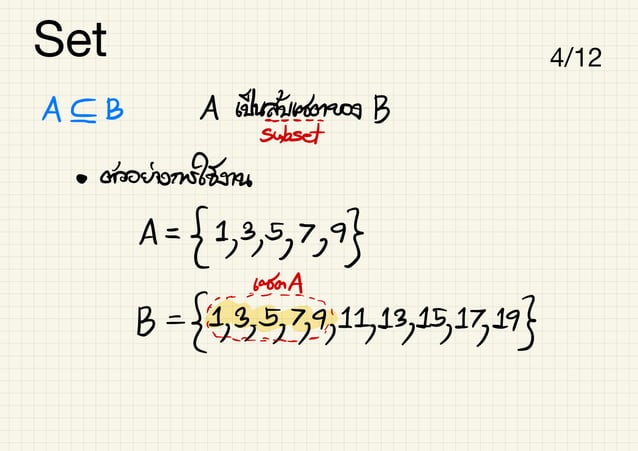 Set
4/12
A ⊆ B A เป็นสับเซตของ B
subset
• ตัวอย่างการใช้งาน
A = {1,3,5,7,9}
เซตA
B = {1,3,5,7,9,11,13,15,17,19}